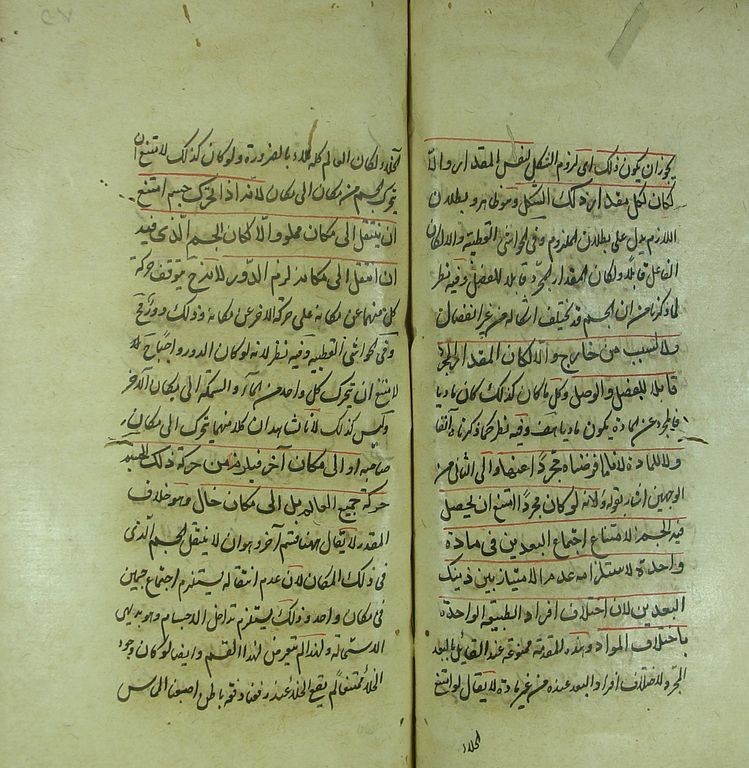 يجوز ان يكون ذلك اى لزوم الشكل لنفس المقدار والا
لكان لكل مقدار ذلك الشكل وهو ظاهر و بطلان
اللازم يدل على بطلان الملزوم وفى الحواشى القطبية والا لكان
قابلا ولكان المقدار المجرد قابلا للفصل وفيه نظر
لما ذكرنا من ان الجسم قد يختلف اشكاله من غير انفصال
ولا لسبب من خارج والا لكان المقدار المجرد
قابلا للفصل والوصل وكل ما كان كذلك كان ماديا
فالمجرد عن المادة يكون ماديا هف وفيه نظر كما ذكرنا آنفا
ولا للمادة لانا فرضناه مجردا عنها والى الثانى من
الوجهين اشار بقوله ولانه لو كان مجردا امتنع ان يحصل
فيه الجسم لامتناع اجتماع البعدين فى مادة
واحدة لاستلزامه عدم الامتياز بين ذينك
البعدين لان اختلاف افراد الطبيعة الواحدة
باختلاف المواد وهذه المقدمة ممنوعة عند القائل بالبعد
المجرد لاختلاف افراد البعد عنده من غير مادة لا يقال لو امتنع
الخلاء
الخلاء لكان العالم كله ملاء بالضرورة ولو كان كذلك لامتنع ان
يتحرك جسم من مكان الى مكان لانه اذا تحرك جسم امتنع
ان ينتقل الى مكان مملو والا لكان الجسم الذى فيه
ان انتقل الى مكانه لزم الدور لانه ح يتوقف حركة
كل منهما عن مكانه على حركة الاخر عن مكانه وذلك دور
وفى الحواشى القطبية وفيه نظر لانه لو كان الدور
لامتنع ان يتحرك كل واحد من الماء والسمكة الى مكان الاخر
وليس كذلك لانا نشاهد ان كلا منهما يتحرك الى مكان
صاحبه او الى مكان آخر فيلزم من حركة ذلك الجسم
حركة جميع العالم بل الى مكان خال وهو خلاف
المقدر لا يقال ههنا قسم آخر وهو ان لا ينتقل الجسم الذى
فى ذلك المكان لان عدم انتقاله يستلزم اجتماع جسمين
فى مكان واحد وذلك يستلزم تداخل الاجسام وهو بديهى
الاستحالة ولهذا لم يتعرض لهذا القسم وايضا لو كان وجود
الخلاء ممتنعا لم يقع الخلاء عند رفعنا دفعة باطن اصبعنا الماس